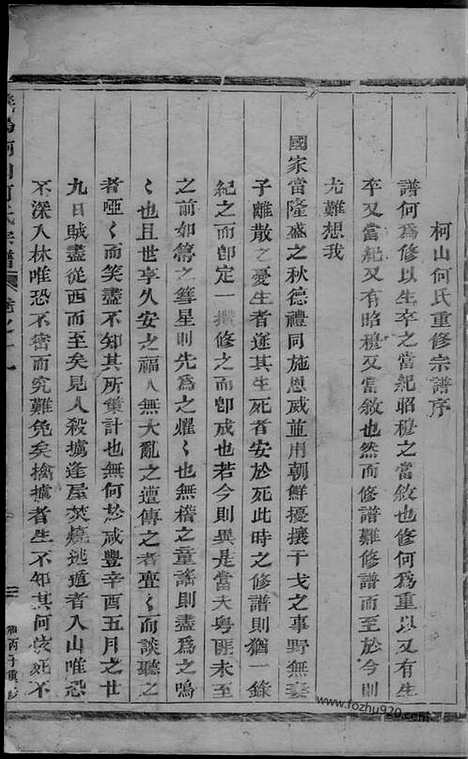 柯山何氏重修宗譜序
譜何為修以生卒之當紀昭穆之當敘也修何為重以又有生
卒又當紀又有昭穆又當敘也然而修譜難修譜而至於今則
尤難想我
國家當隆盛之秋德禮同施恩威並用朝鮮擾攘干戈之事野無妻
子離散之憂生者遂其生死者安於死此時之修譜則猶一錄
紀之而即定一撰修之而即成也若今則異是當夫粵匪未至
之前如箒之彗星則先為之燿〻也無稽之童謠則盡為之鳴
〻也且世享久安之福人無大亂之遭傳之者亹〻而談聽之
者啞〻而笑盡不知其所重計也無何於咸豐辛酉五月之廿
九日賊盡從西而至矣見人殺擄逢屋焚燒逃遁者入山唯恐
不深入林唯恐不密而究難免矣擒擄者生不知其何處死不
何氏宗譜
www.fozhu920.com